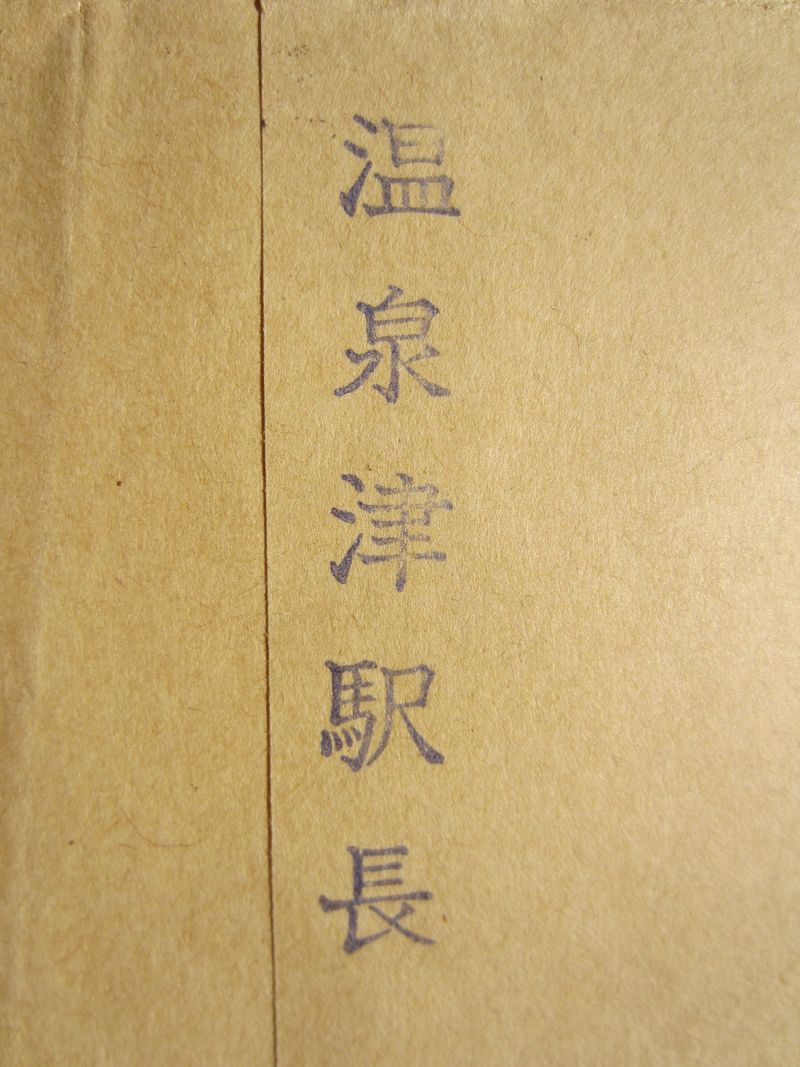 温泉津駅長